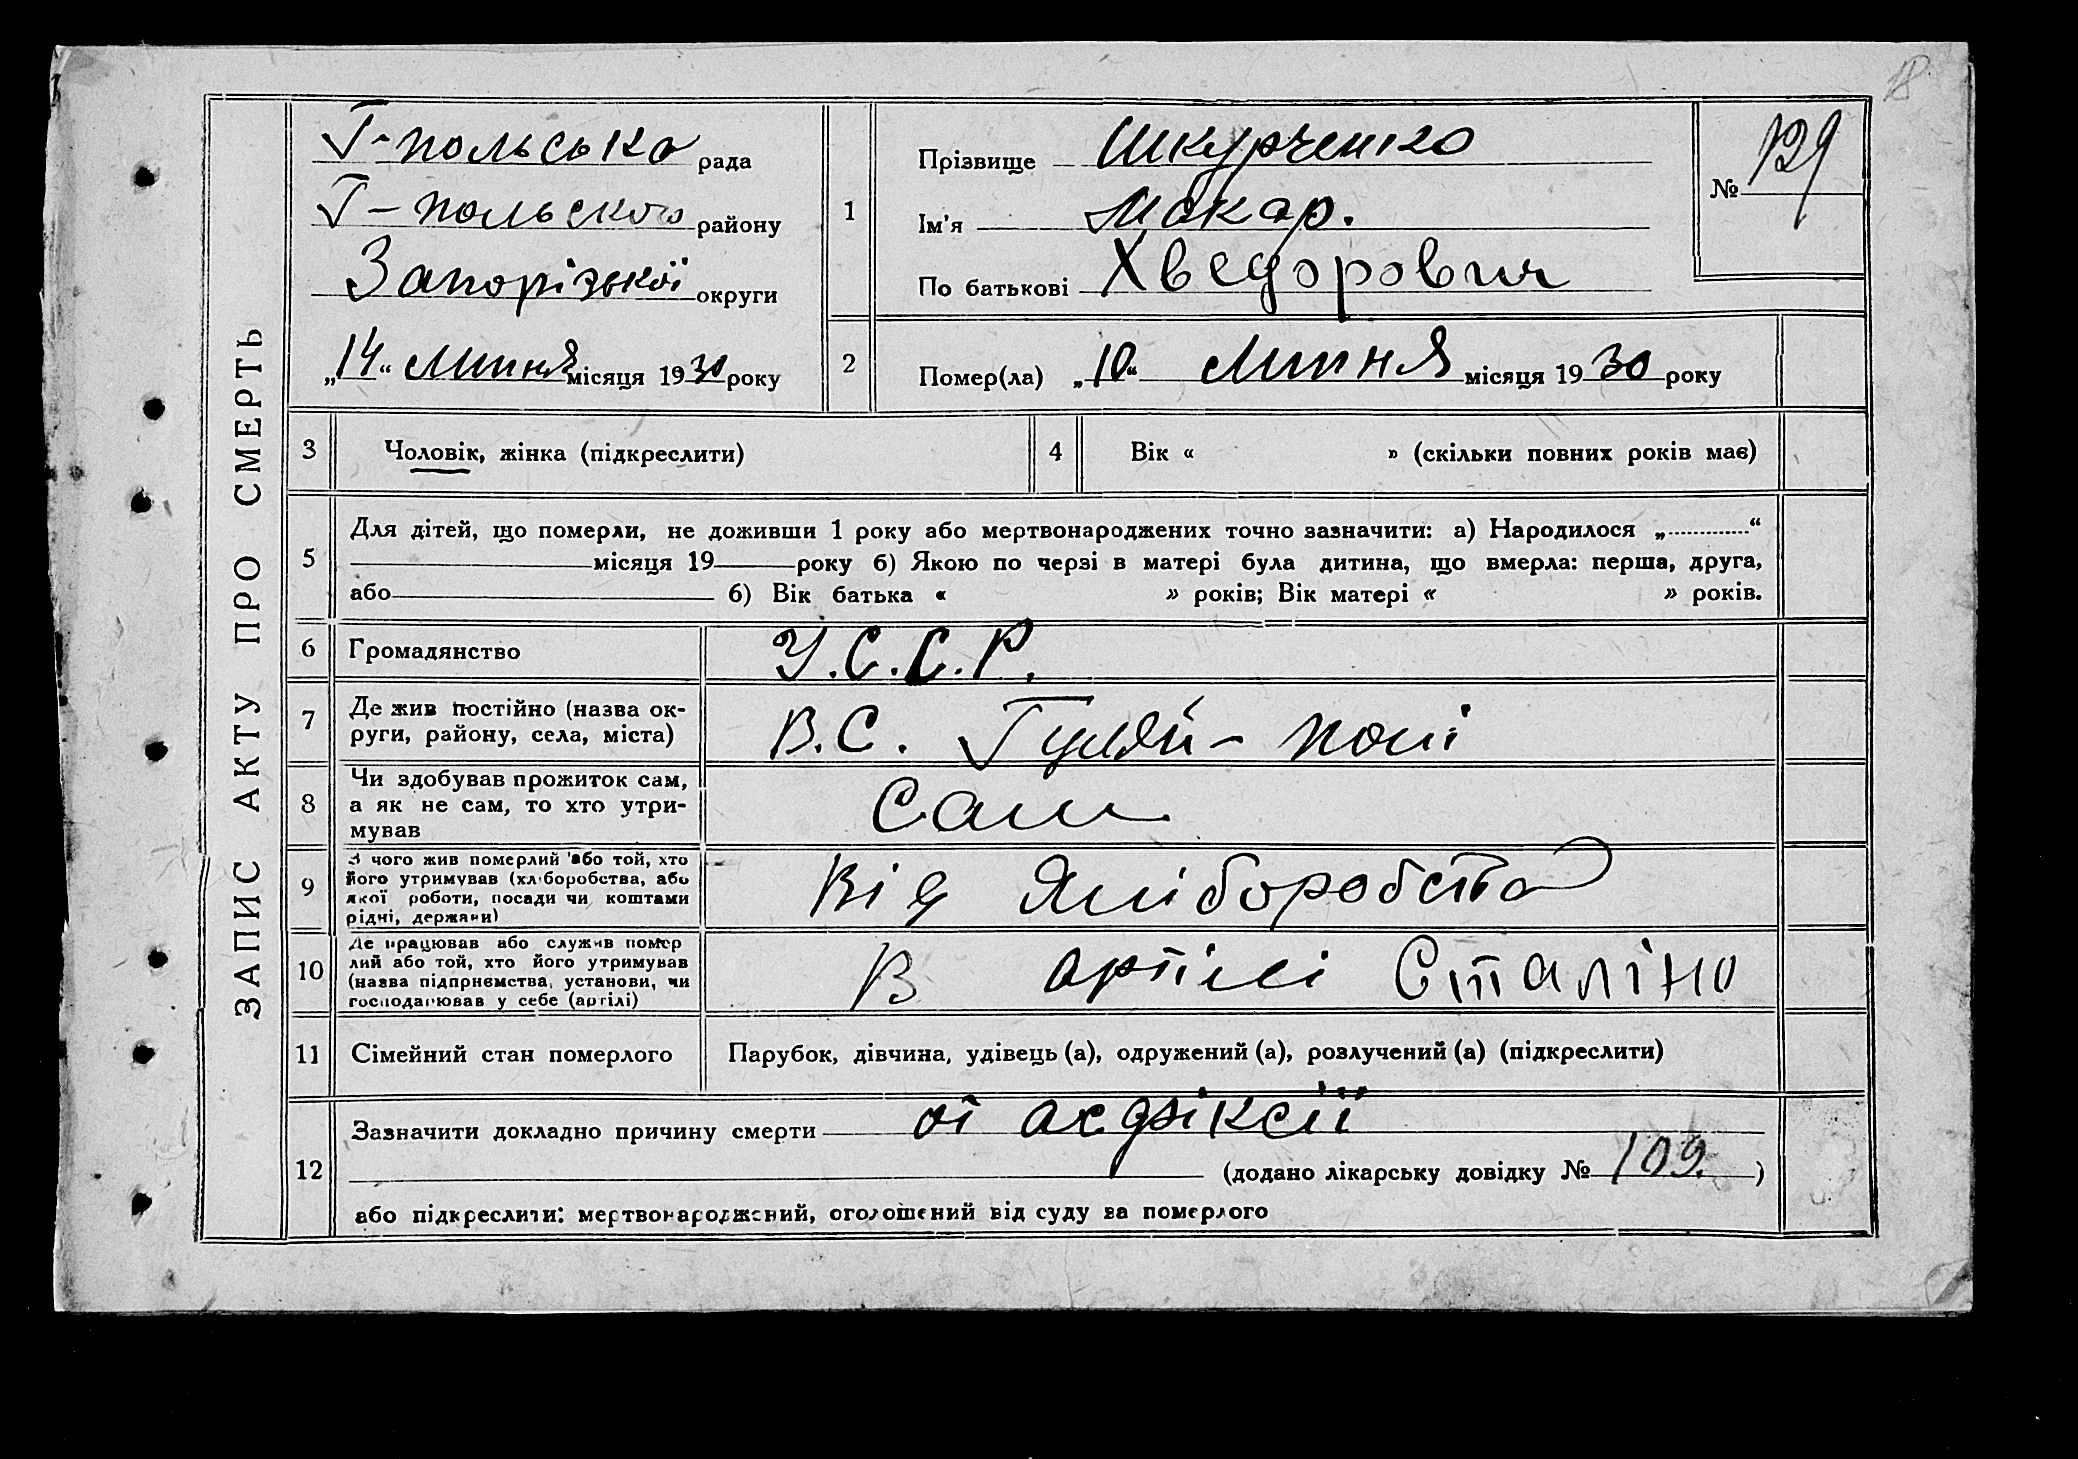 18
ЗАПИС АКТУ ПРО СМЕРТЬ
Г-польська рада
Г-польского району
Запорізької округи
„14“ липня місяця 1930 року
1
Прізвище Шкурченко
Ім'я Макар.
По батькові Хведорович
№ 129
2
Помер(ла) „10“ липня місяця 1930 року
3
Чоловік, жінка (підкреслити)
4
Вік « » (скільки повних років має)
5
Для дітей, що померли, не доживши 1 року або мертвонароджених точно зазначити: а) Народилося „ “
місяця 19 року б) Якою по черзі в матері була дитина, що вмерла: перша, друга,
або б) Вік батька « » років; Вік матері « » років.
6
Громадянство
У.С.С.Р.
7
Де жив постійно (назва ок-
руги, району, села, міста)
В.С. Гуляй-полі
8
Чи здобував прожиток сам,
а як не сам, то хто утри-
мував
Сам
9
З чого жив померлий або той, хто
його утримував (хліборобства, або
якої роботи, посади чи коштами
рідні, держави)
Від хліборобства
10
Де працював або служив помер
лий або той, хто його утримував
(назва підприємства, установи, чи
господарював у себе (артілі)
В артілі Сталіна
11
Сімейний стан померлого
Парубок, дівчина, удівець (а), одружений (а), розлучений (а) (підкреслити)
12
Зазначити докладно причину смерти от асфіксії
(додано лікарську довідку № 109. )
або підкреслити: мертвонароджений, оголошений від суду за померлого